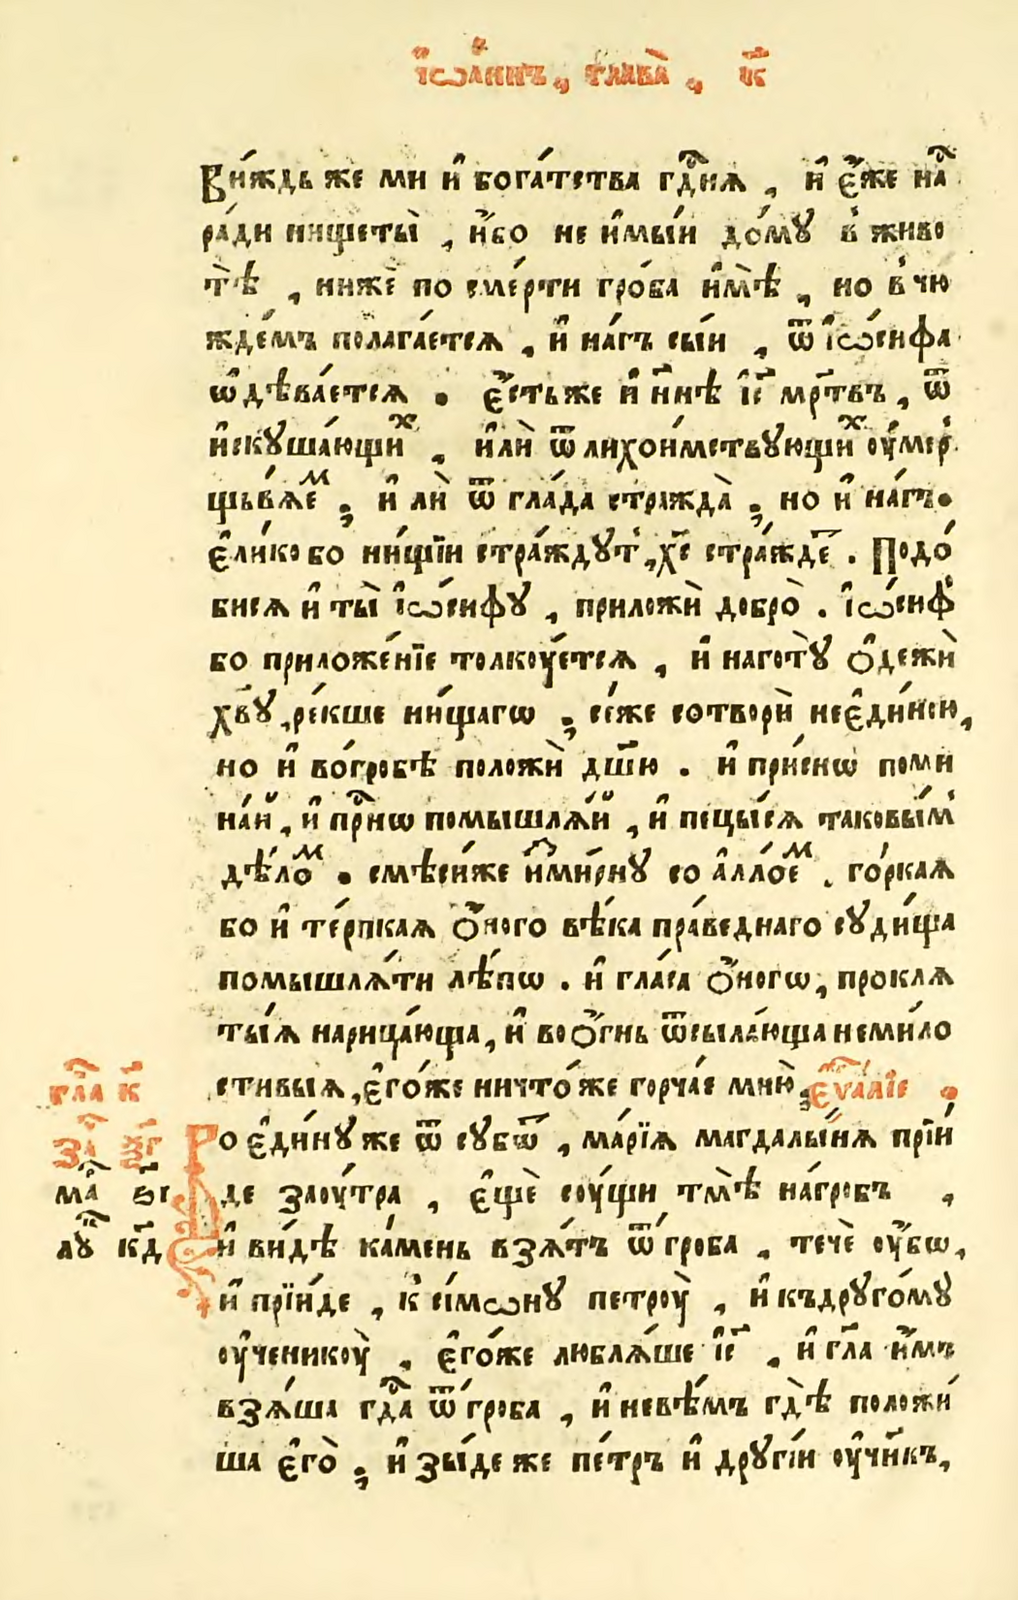 І҆ѡа́ннъ, глава̀, к҃
Ви́ждь же ми и҆ бога́тства гд҇ня, и҆ є҆́же на́с
ра́ди нищеты̀, и҆́бо не и҆мы́и до́му в живо
тѣ̀, нижѐ по сме́рти гро́ба и҆мѣ̀, но в чю
жде́мъ полага́ется, и҆ на́гъ сы́и, ѿ і҆ѡ́сифа
ѡ҆дѣва́ется. є҆́стьже и҆ нн҃ѣ і҆с҃ мр҃твъ, ѿ
и҆скуша́ющих, и҆лѝ ѿ лихои́мствующих оу҆мер
щьвя́ем, и҆ лѝ ѿ гла́да стражда̀, но и҆ на́гъ.
є҆ли́ко бо ни́щїи стра́ждут, хс҃ стра́жде. Подо́
бися и҆ ты̀ і҆ѡ́сифу, приложѝ добро̀. і҆ѡ́сиф
бо приложе́нїе толкоу́ется, и҆ наготу̀ ѻ҆дежѝ
хв҃у, ре́кше ни́щагѡ, се́же сотворѝ неє҆ди́ною,
но и҆ во́гробѣ положѝ дш҃ю. и҆ при́снѡ поми
на́й, и҆ при҇нѡ помышля́й, и҆ пецы́ся таковы́м
дѣ́лом. смѣси́же и҆ми́рну со а҆лло́ем. го́ркая
бо и҆ те́рпкая ѻ҆́ного вѣ́ка пра́веднаго суди́ща
помышля́ти лѣ́пѡ. и҆ гла́са ѻ҆́ногѡ, прокля
ты́я нарица́юща, и҆ воѻ҆́гнь ѿсыла́юща неми́ло
стивыя, є҆го́же ничто́же горча́е мню̀, є҆ѵа́лїе.
Во є҆ди́ну же ѿ субѿ, марі́я магдалы́ня прїи́
де заоу́тра, є҆щѐ соу́щи тмѣ̀ на́гробъ,
и҆ ви́дѣ ка́мень взя́тъ ѿ гро́ба, течѐ оу҆́бѡ,
и҆ прїи́де, к сі́мѡну петроу̀, и҆ къдруго́му
оу҆ченикоу̀, є҆го́же любля́ше і҆с҃, и҆ гл҃а и҆́мъ
взя́ша гд҇а ѿ гро́ба, и҆ невѣ́мъ гдѣ̀ положи́
ша є҆го̀, и҆ зы́де же пе́тръ и҆ други́и оу҆чн҃къ,
гла к҃
за ѯ҃г
ма в҃і
лу к҃д